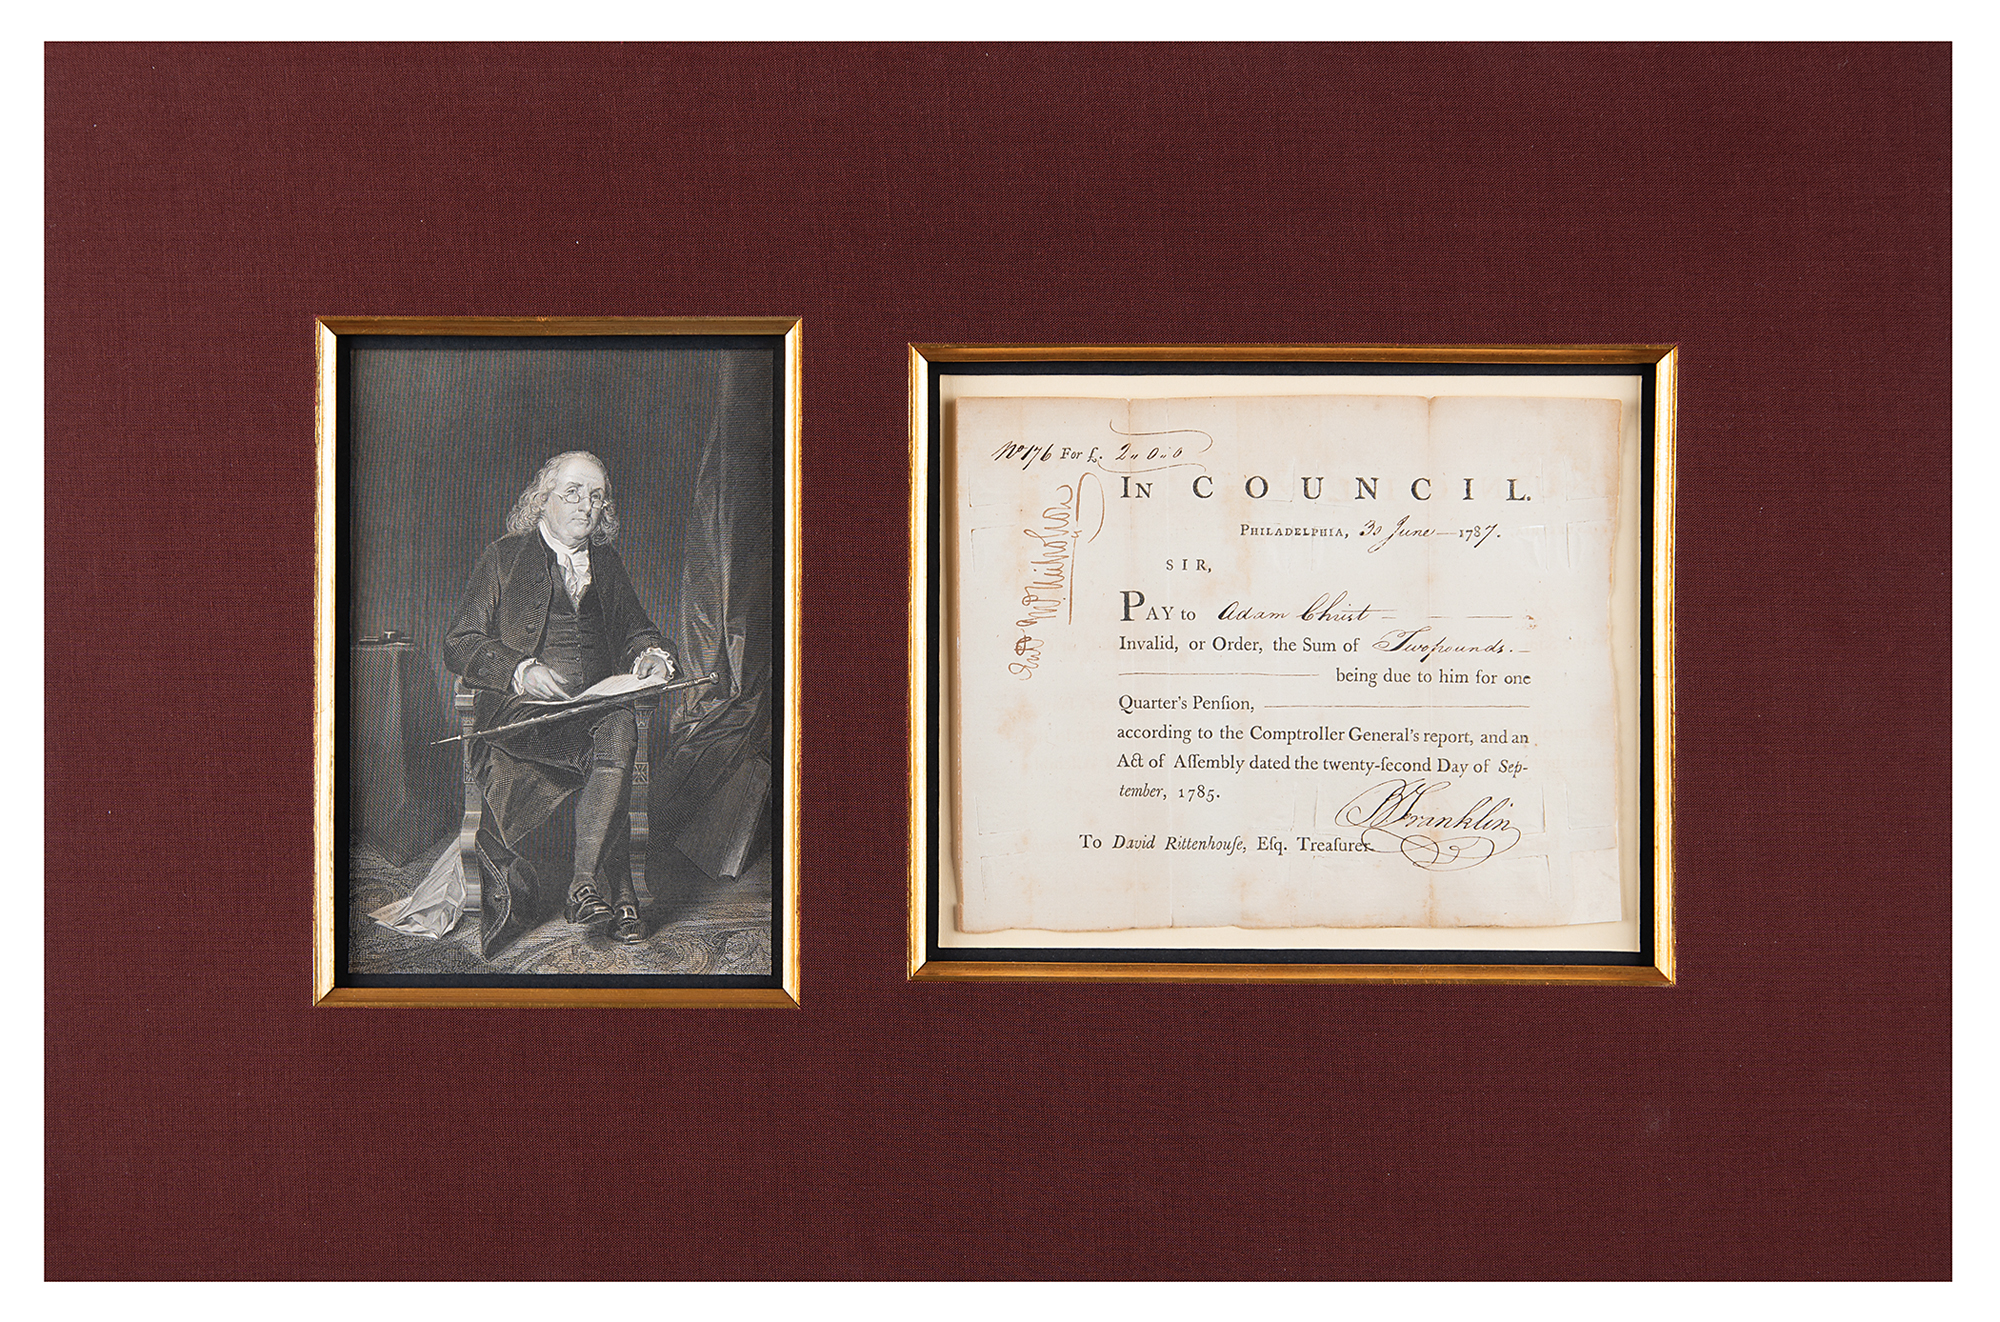 No 176 For £. 2 ,, 0 ,, 0
IN COUNCIL.
PHILADELPHIA, 30 June — 1787.
SIR,
PAY to Adam Christ
Invalid, or Order, the Sum of Two pounds. —
being due to him for one
Quarter's Penſion,
according to the Comptroller General's report, and an
Act of Aſſembly dated the twenty-ſecond Day of Sep-
tember, 1785.
B Franklin
To David Rittenhouſe, Eſq. Treaſurer.
Jno Nicholson